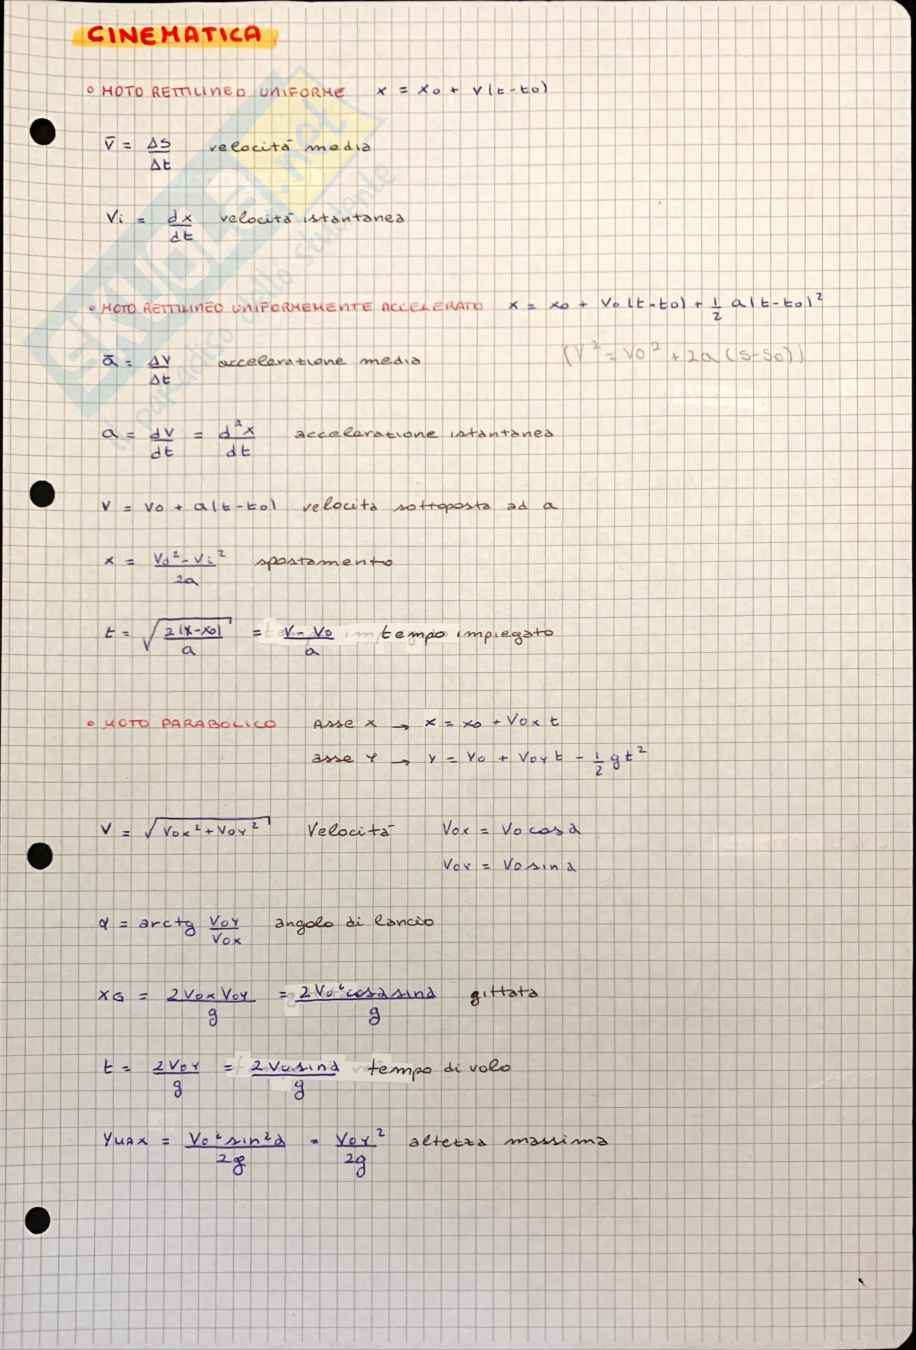 CINEMATICA
• MOTO RETTILINEO UNIFORME x = x0 + v(t-t0)
v̄ = Δs/Δt velocità media
Vi = dx/dt velocità istantanea
• MOTO RETTILINEO UNIFORMEMENTE ACCELERATO x = x0 + V0(t-t0) + 1/2 a(t-t0)²
(V² = V0² + 2a(s-s0))
ā = ΔV/Δt accelerazione media
a = dV/dt = d²x/dt accelerazione istantanea
V = V0 + a(t-t0) velocità sottoposta ad a
x = (V0² - Vi²)/2a spostamento
t = √(2(x-x0)/a) = (V-V0)/a tempo impiegato
• MOTO PARABOLICO Asse x → x = x0 + V0x t
asse Y → Y = Y0 + V0Y t - 1/2 gt²
V = √(V0x² + V0Y²) Velocità V0x = V0 cosα
V0Y = V0 sinα
α = arctg V0Y/V0x angolo di lancio
xG = 2V0x V0Y/g = 2V0² cosα sinα/g gittata
t = 2V0Y/g = 2V0 sinα/g tempo di volo
YMAX = V0² sin²α/2g = V0Y²/2g altezza massima
SKUOLA.net
il paradiso dello studente